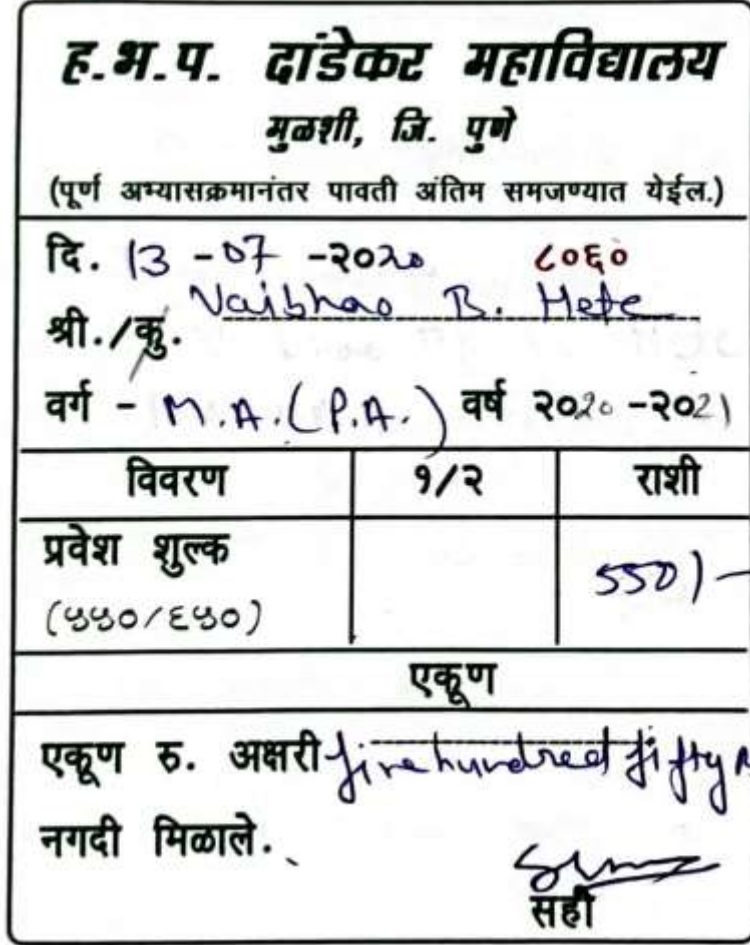 ह.भ.प. दांडेकर महाविद्यालय
मुळशी, जि. पुणे
(पूर्ण अभ्यासक्रमानंतर पावती अंतिम समजण्यात येईल.)
दि. 13 -07 -२०२० ८०६०
श्री./कु. Vaibhao B. Hete
वर्ग - M.A. (P.A.) वर्ष २०20 -२०21
विवरण १/२ राशी
प्रवेश शुल्क
(५५०/६५०) 550/-
एकूण
एकूण रु. अक्षरी five hundred fifty
नगदी मिळाले.
सही